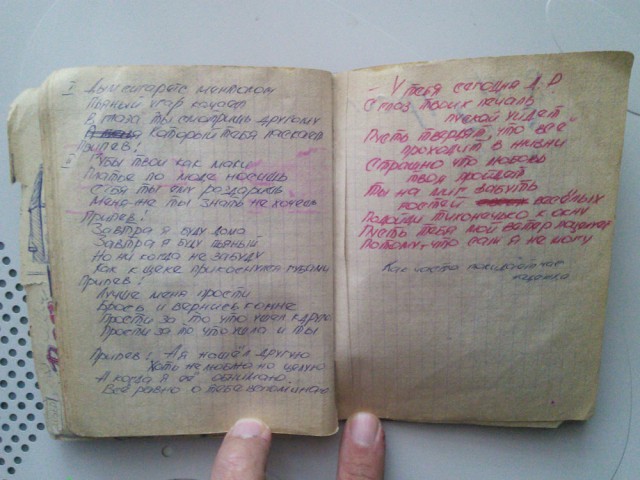 I Дым сигарет с ментолом
Пьяный угар качает
В глаза ты смотришь другому
Который тебя ласкает
Припев!
II Губы твои как маки
Платье по моде носишь
Себя ты ему раздаришь
Меня же ты знать не хочешь
Припев!
Завтра я буду дома
Завтра я буду пьяный
Но никогда не забуду
Как к щеке прикоснулся губами
Припев!
Лучше меня прости
Брось и вернись ко мне
Прости за то что ушел к другой
Прости за то что
и ты
Припев! А я нашёл другую
Хоть не люблю но целую
А когда я её обнимаю
Всё равно о тебе вспоминаю
– У тебя сегодня Д.Р
С глаз твоих печаль
пускай уйдет
Пусть твердят, что всё
проходит в жизни
Страшно что любовь
твоя пройдет
Ты на миг забудь
гостей весёлых
Подойди тихонечко к окну
Пусть тебя мой ветер поцелует
Потому, что сам я не могу
Как часто